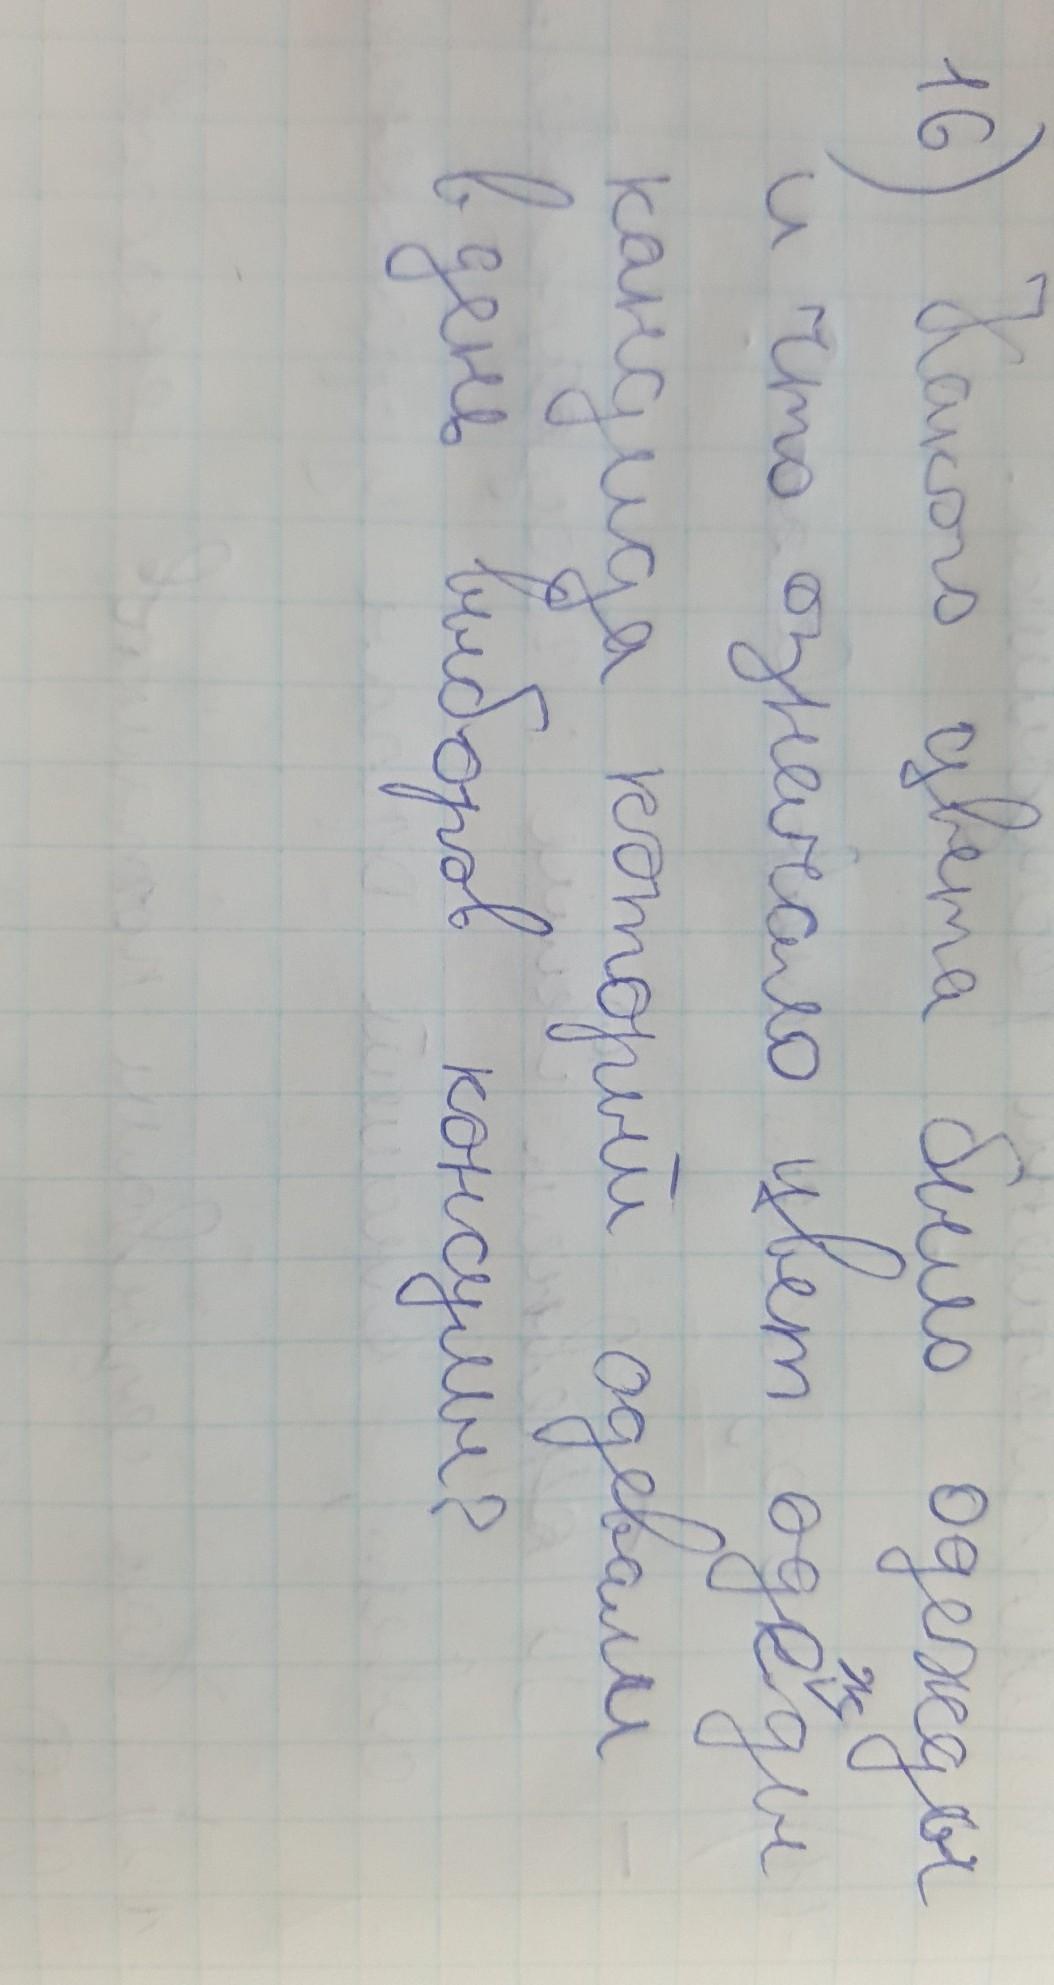 16) Какого цвета было одежды
и что означало цвет одежды
кандида который одевали
в день выборов консулы?